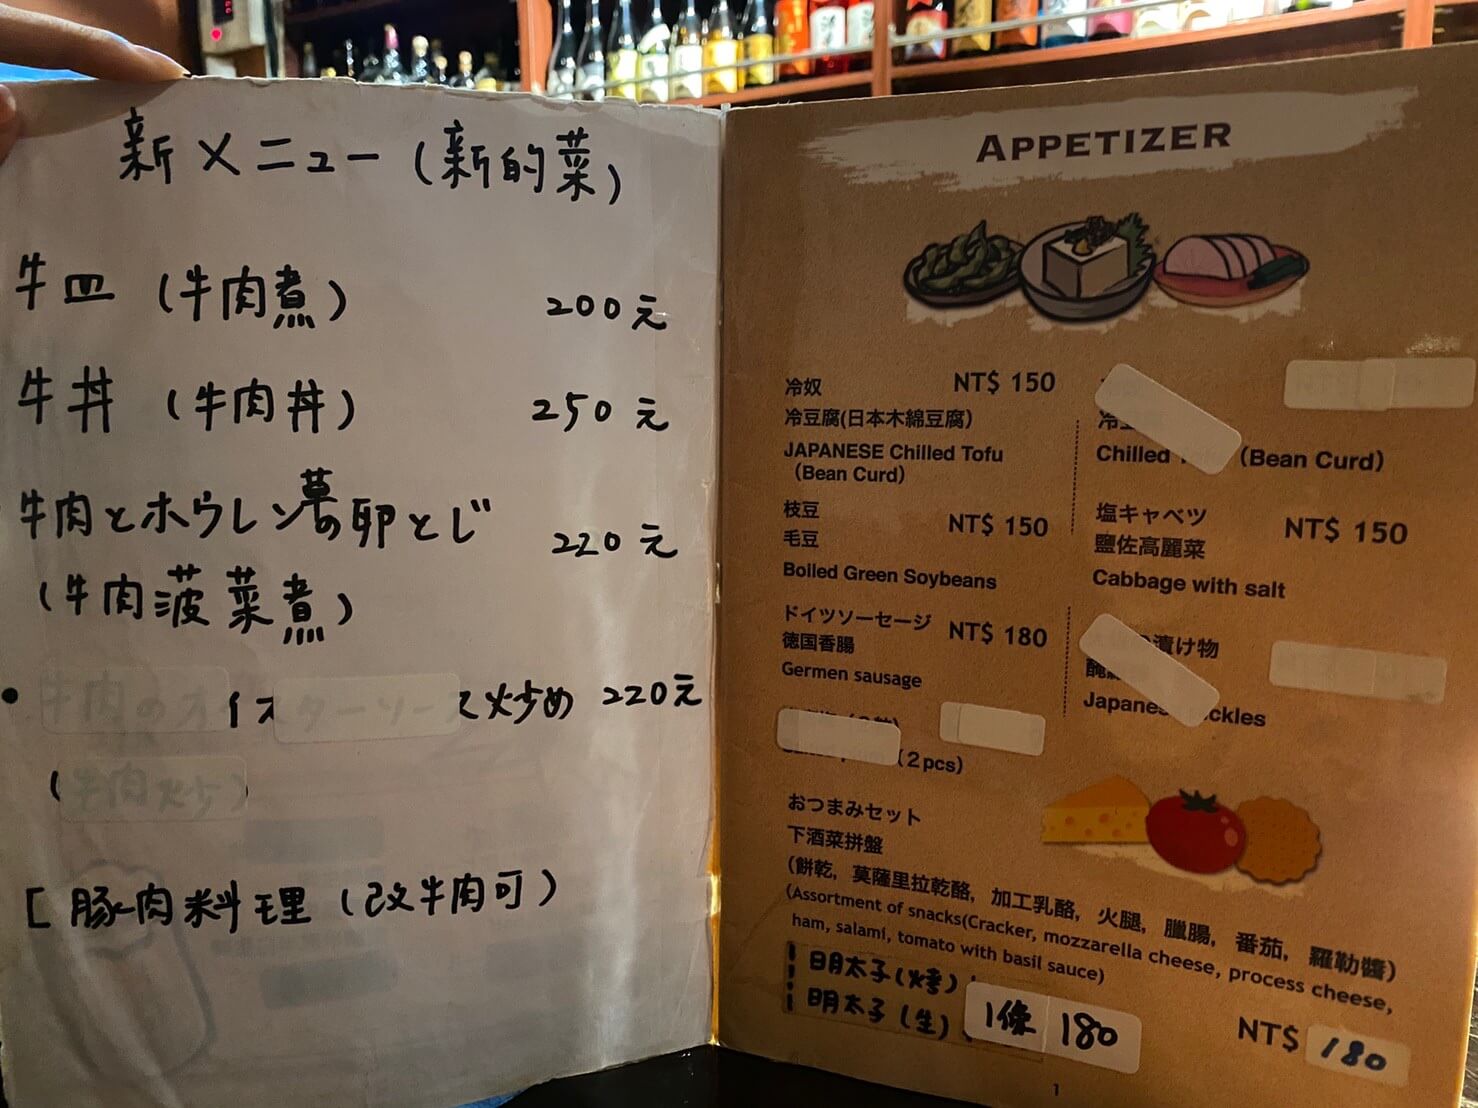 新メニュー(新的菜)
牛皿 (牛肉煮) 200元
牛丼 (牛肉丼) 250元
牛肉とホウレン草の卵とじ 220元
(牛肉菠菜煮)
牛肉のオイスターソース炒め 220元
(牛肉炒)
[豚肉料理 (改牛肉可)
APPETIZER
冷奴 NT$ 150
冷豆腐(日本木綿豆腐)
JAPANESE Chilled Tofu
(Bean Curd)
枝豆 NT$ 150
毛豆
Boiled Green Soybeans
ドイツソーセージ NT$ 180
徳国香腸
Germen sausage
(2pcs)
Chilled (Bean Curd)
塩キャベツ NT$ 150
鹽佐高麗菜
Cabbage with salt
漬け物
おつまみセット
下酒菜拼盤
(餅乾, 莫薩里拉乾酪, 加工乳酪, 火腿, 臘腸, 番茄, 羅勒醬)
(Assortment of snacks(Cracker, mozzarella cheese, process cheese,
ham, salami, tomato with basil sauce)
明太子(烤)
明太子(生) 1條 180
NT$ 180
1